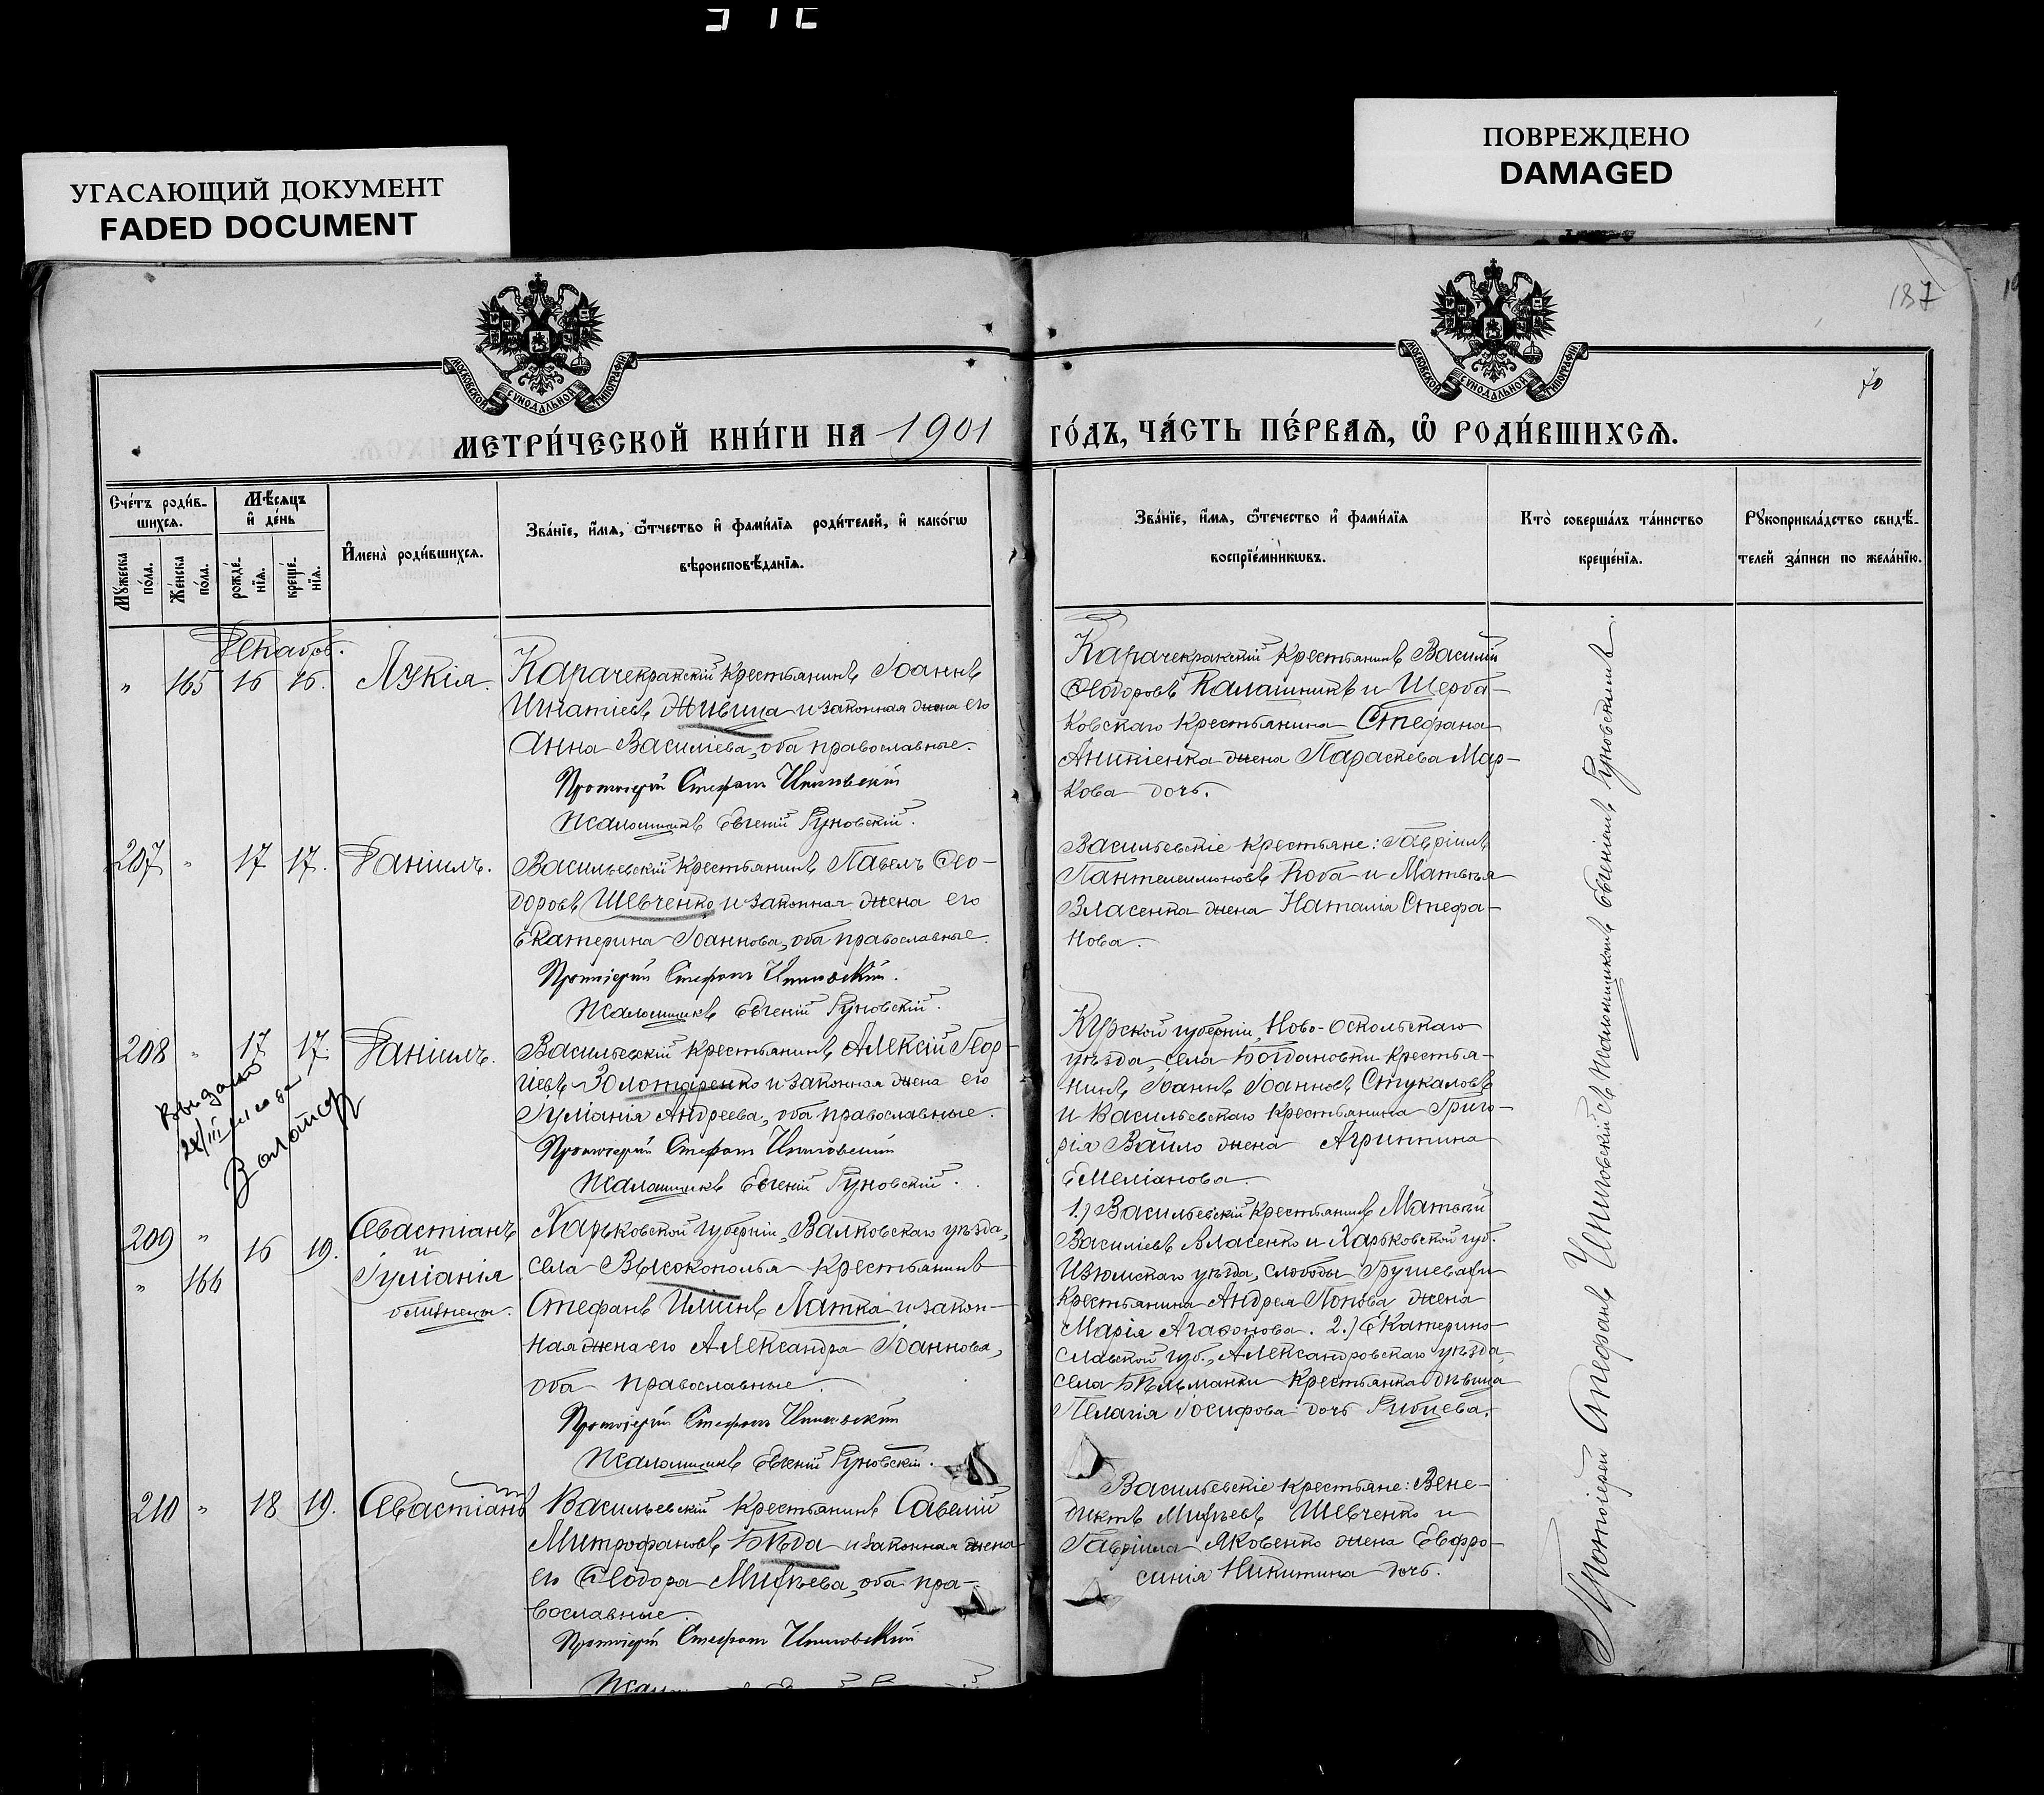 УГАСАЮЩИЙ ДОКУМЕНТ
FADED DOCUMENT
ПОВРЕЖДЕНО
DAMAGED
187
70
МОСКОВСКОЙ СУНОДАЛЬНОЙ ТИПОГРАФІИ
МОСКОВСКОЙ СУНОДАЛЬНОЙ ТИПОГРАФІИ
МЕТРИ́ЧЕСКОЙ КНИ́ГИ НА 1901 ГО́ДЪ, ЧА́СТЬ ПЕ́РВАѦ, Ѡ҆ РОДИ́ВШИХСѦ.
Сче́тъ роди́в-
шихсѧ.
Мѣ́сѧцъ
и҆ де́нь
Мꙋ́жеска по́ла.
Же́нска по́ла.
рожде́-
нїѧ.
креще́-
нїѧ.
И҆мена̀ роди́вшихсѧ.
Зва́нїе, и҆́мѧ, ѻ҆́тчество и҆ фами́лїѧ роди́телей, и҆ како́гѡ
вѣроисповѣ́данїѧ.
Зва́нїе, и҆́мѧ, ѻ҆те́чество и҆ фами́лїѧ
воспрїе́мникѡвъ.
Кто̀ соверша́лъ та́инство
креще́нїѧ.
Рꙋкоприкла́дство свидѣ́-
телей за́писи по жела́нїю.
Декабрь.
" 165 16 16. Лукія.
Карачекракскій крестьянинъ Іоаннъ
Игнатіевъ Живица и законная жена его
Анна Василіева, оба православные.
Протоіерей Стефанъ
Псаломщикъ Евгеній Руновскій.
Карачекракскій крестьянинъ Василій
Ѳеодоровъ Калашникъ и Щерба-
ковскаго крестьянина Стефана
Аникіенка жена Параскева Мар-
кова дочь.
207 " 17 17. Даніилъ.
Васильевскій крестьянинъ Павелъ Ѳео-
доровъ Шевченко и законная жена его
Екатерина Іоаннова, оба православные.
Протоіерей Стефанъ
Псаломщикъ Евгеній Руновскій.
Васильевскіе крестьяне: Гавріилъ
Пантелеимоновъ Коба и Матвѣя
Власенка жена Наталія Стефа-
нова.
208 " 17 17. Даніилъ.
Выдано
Васильевскій крестьянинъ Алексій Геор-
гіевъ Золотаренко и законная жена его
Іуліанія Андреева, оба православные.
Протоіерей Стефанъ
Псаломщикъ Евгеній Руновскій.
Курской губерніи, Ново-Оскольскаго
уѣзда, села Богдановки крестья-
нинъ Іоаннъ Іоанновъ Стукаловъ
и Васильевскаго крестьянина Григо-
рія Вайло жена Агриппина
Емеліанова.
209 " 16 19. Севастіанъ
и
" 166 Іуліанія
близнецы.
Харьковской губерніи, Валковскаго уѣзда,
села Высокополья крестьянинъ
Стефанъ Иліинъ Латка и закон-
ная жена его Александра Іоаннова,
оба православные.
Протоіерей Стефанъ
Псаломщикъ Евгеній Руновскій.
1.) Васильевскій крестьянинъ Матвѣй
Василіевъ Власенко и Харьковской губ.
Изюмскаго уѣзда, слободы Грушевахи
крестьянина Андрея Попова жена
Марія Агаѳонова. 2.) Екатерино-
славской губ., Александровскаго уѣзда,
села Бѣльманки крестьянка дѣвица
Пелагія Іосифова дочь
210 " 18 19. Севастіанъ
Васильевскій крестьянинъ Савелій
Митрофановъ Бѣда и законная жена
его Ѳеодора Миѳѣева, оба пра-
вославные.
Протоіерей Стефанъ
Васильевскіе крестьяне: Вене-
диктъ Миѳѣевъ Шевченко и
Гавріила Яковенко жена Евфро-
синія Никитина дочь.
Протоіерей Стефанъ съ псаломщикомъ Евгеніемъ Руновскимъ.